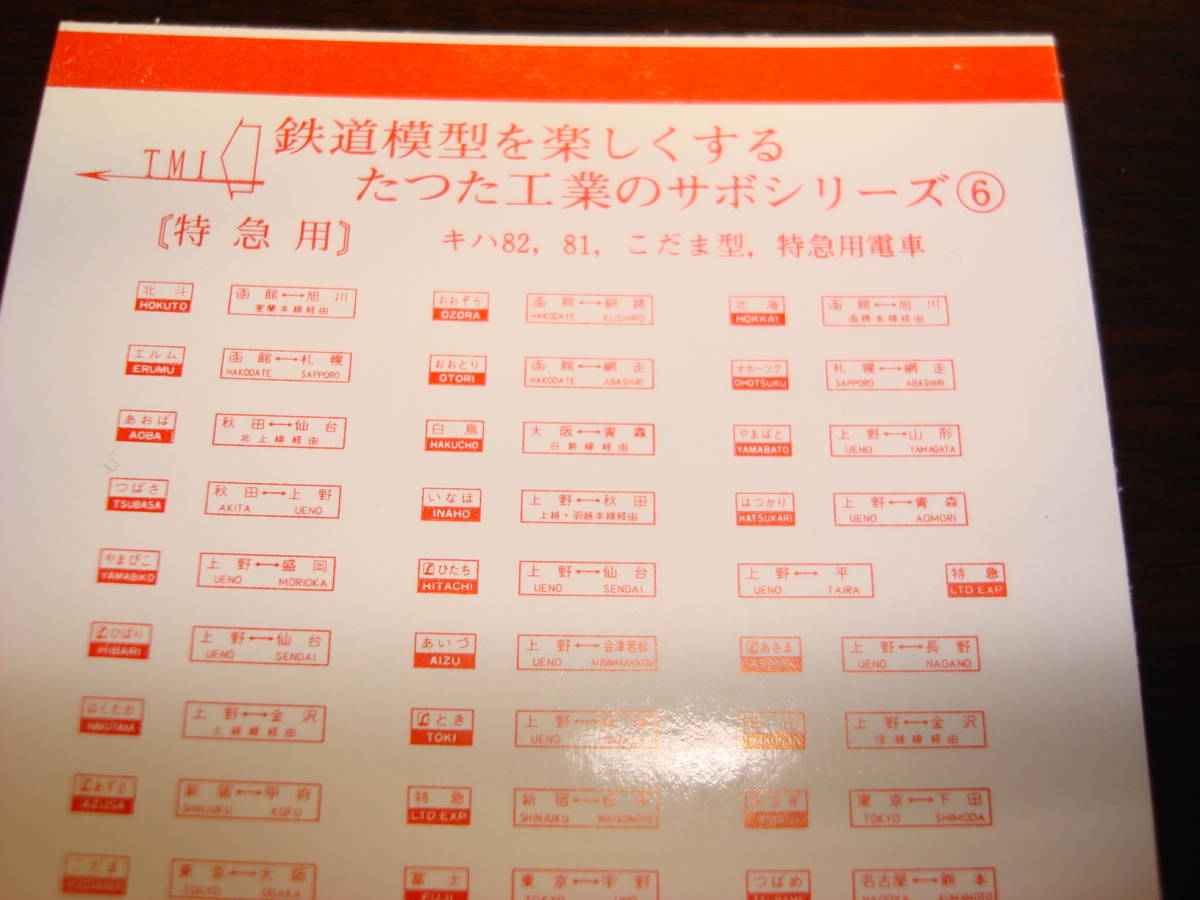 TMI
鉄道模型を楽しくする
たつた工業のサボシリーズ⑥
〔特急用〕 キハ82, 81, こだま型, 特急用電車
北斗 函館↔旭川 おおぞら 函館↔釧路 北海 函館↔旭川
HOKUTO 室蘭本線経由 OZORA HAKODATE KUSHIRO HOKKAI 函館本線経由
エルム 函館↔札幌 おおとり 函館↔網走 オホーツク 札幌↔網走
ERUMU HAKODATE SAPPORO OTORI HAKODATE ABASHIRI OHOTSUKU SAPPORO ABASHIRI
あおば 秋田↔仙台 白鳥 大阪↔青森 やまばと 上野↔山形
AOBA 北上線経由 HAKUCHO 白新線経由 YAMABATO UENO YAMAGATA
つばさ 秋田↔上野 いなほ 上野↔秋田 はつかり 上野↔青森
TSUBASA AKITA UENO INAHO 上越・羽越本線経由 HATSUKARI UENO AOMORI
やまびこ 上野↔盛岡 ひたち 上野↔仙台 上野↔平 特急
YAMABIKO UENO MORIOKA HITACHI UENO SENDAI UENO TAIRA LTD EXP
ひばり 上野↔仙台 あいづ 上野↔会津若松 あさま 上野↔長野
HIBARI UENO SENDAI AIZU UENO AIZUWAKAMATSU ASAMA UENO NAGANO
はくたか 上野↔金沢 とき 上野↔ 上野↔金沢
HAKUTAKA 上越線経由 TOKI UENO HAKUSAN 信越線経由
あずさ 新宿↔甲府 特急 新宿↔ 東京↔下田
AZUSA SHINJUKU KOFU LTD EXP SHINJUKU MATSUMOTO TOKYO SHIMODA
こだま 東京↔大阪 富士 東京↔宇野 つばめ 名古屋↔熊本
KODAMA TOKYO OSAKA FUJI TOKYO UNO TSUBAME NAGOYA KUMAMOTO